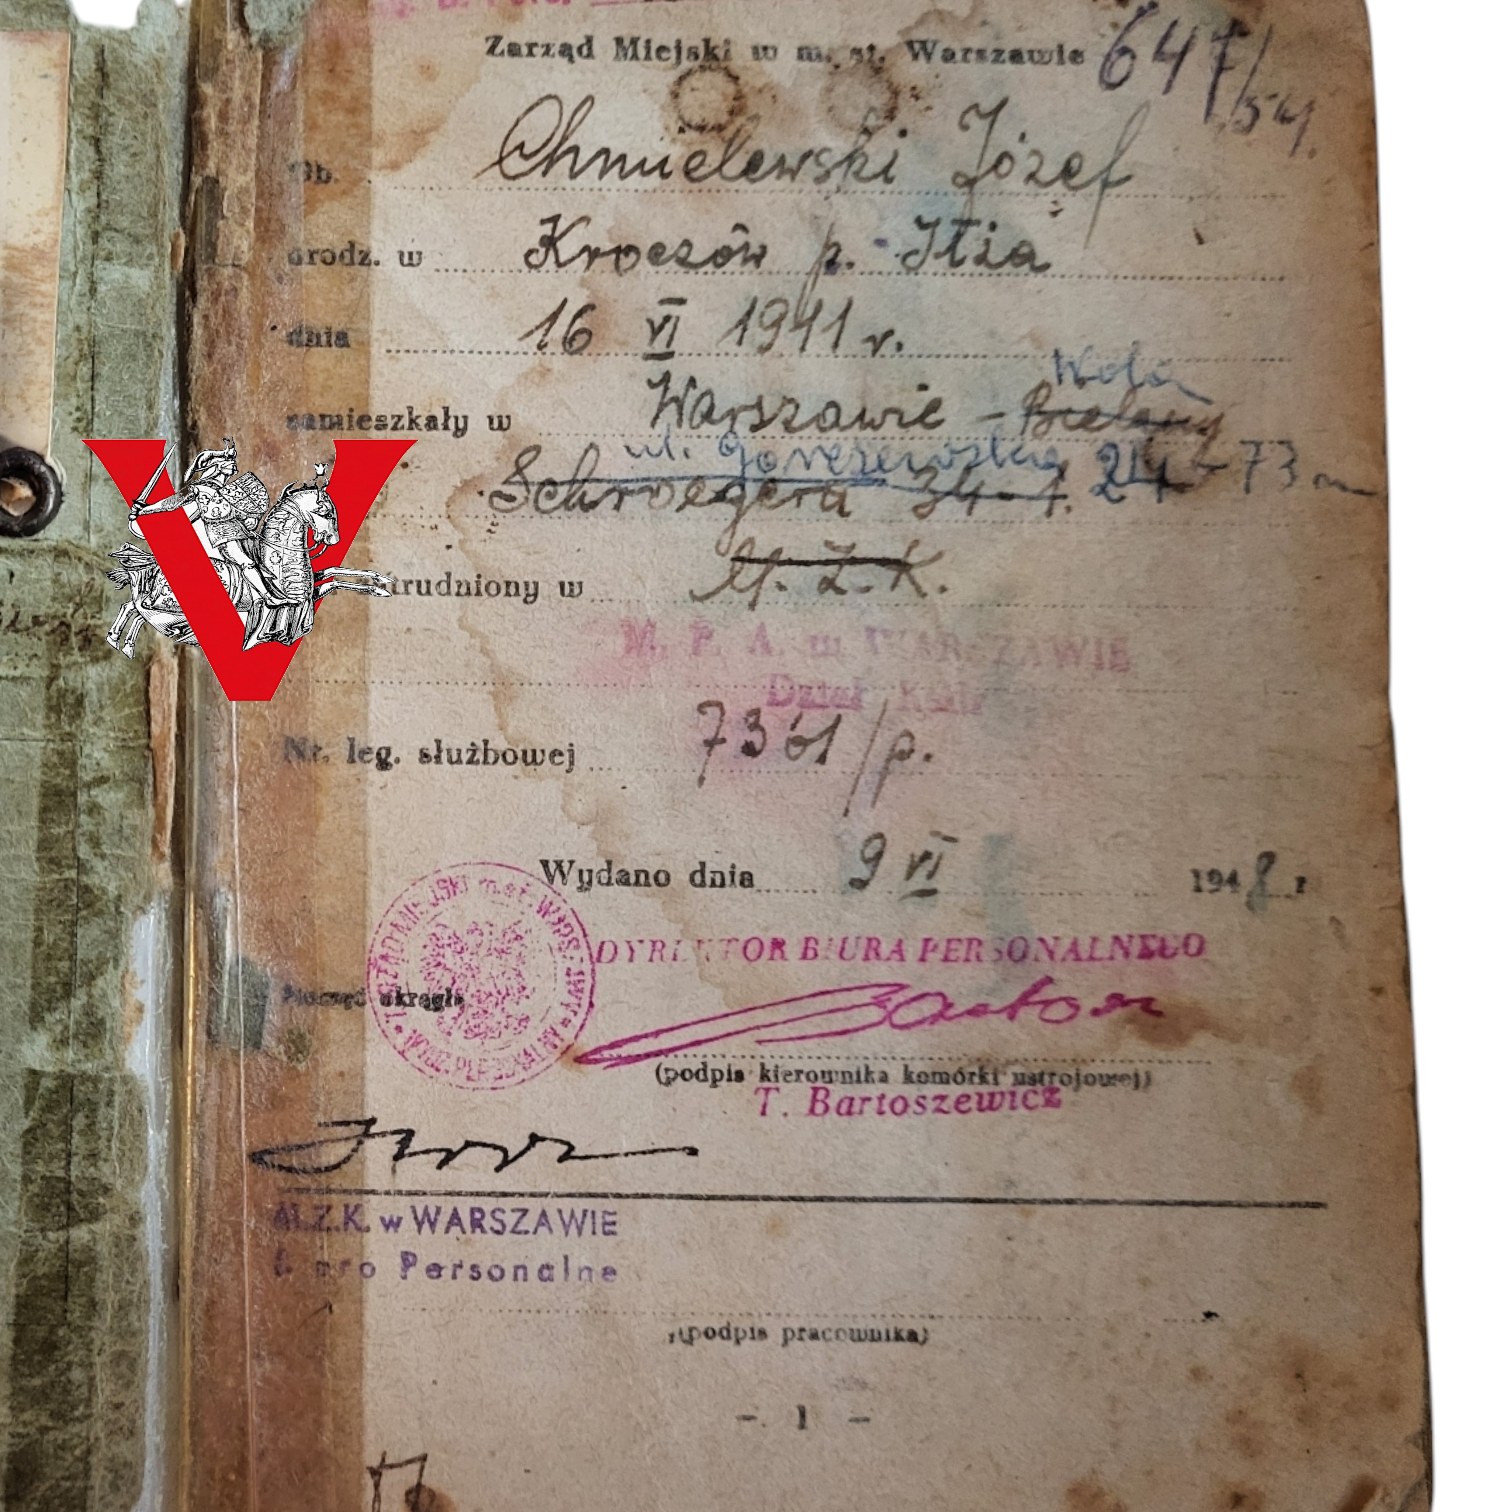 Zarząd Miejski w m. st. Warszawie 647/54.
Ob. Chmielewski Józef
urodz. w Kroczów p. Iłża
dnia 16 VI 1911 r.
Wola
zamieszkały w Warszawie - Bielany
ul. Gorczewska 214 - 73 m
Schroegera 34-7.
zatrudniony w M. Z. K.
M. P. A. w WARSZAWIE
Dział
Nr. leg. służbowej 7361/p.
Wydano dnia 9 VI 1948 r
ZARZĄD MIEJSKI m. st. WARSZAWY
WYDZ. PERSONALNY
DYREKTOR BIURA PERSONALNEGO
okrągła
(podpis kierownika komórki ustrojowej)
T. Bartoszewicz
M.Z.K. w WARSZAWIE
Biuro Personalne
(podpis pracownika)
- 1 -
V